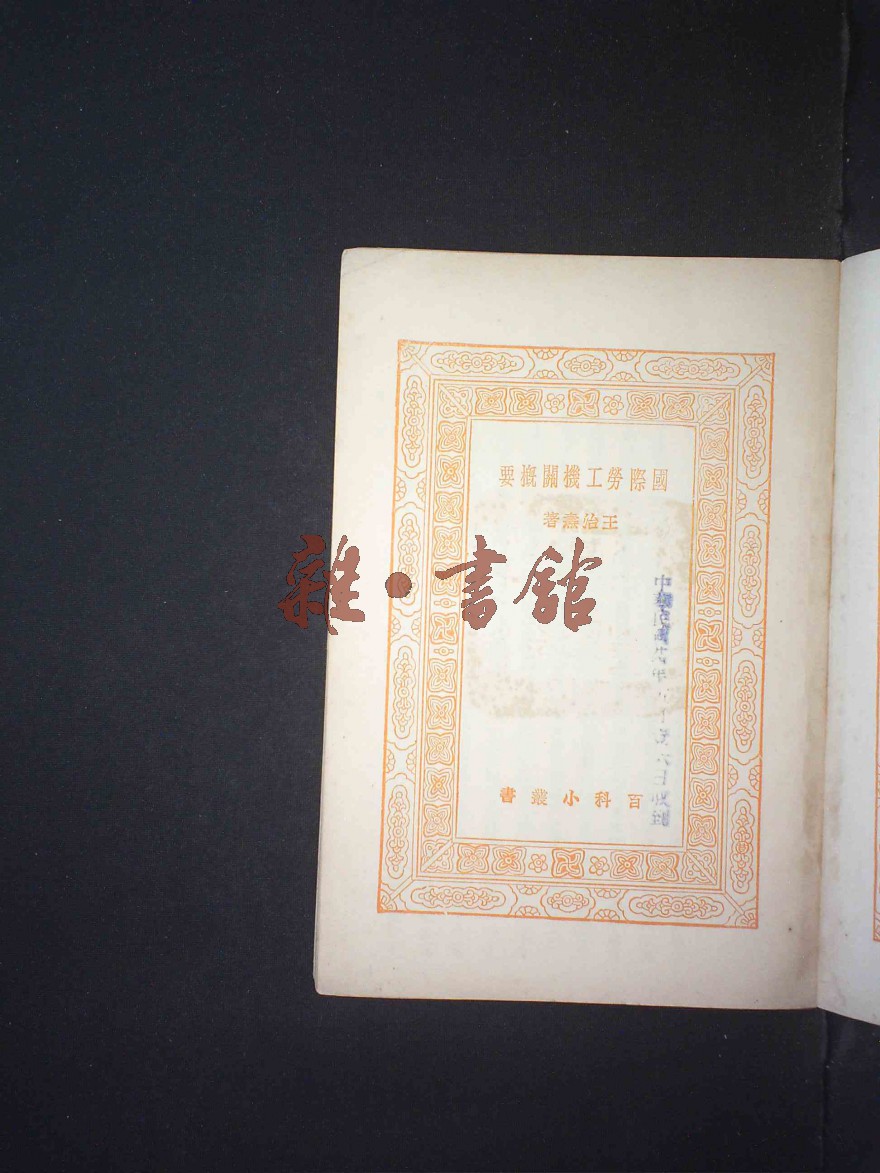 國際勞工機關概要
王治燾著
百科小叢書
雜·書館
中華民國 年 月 日收到